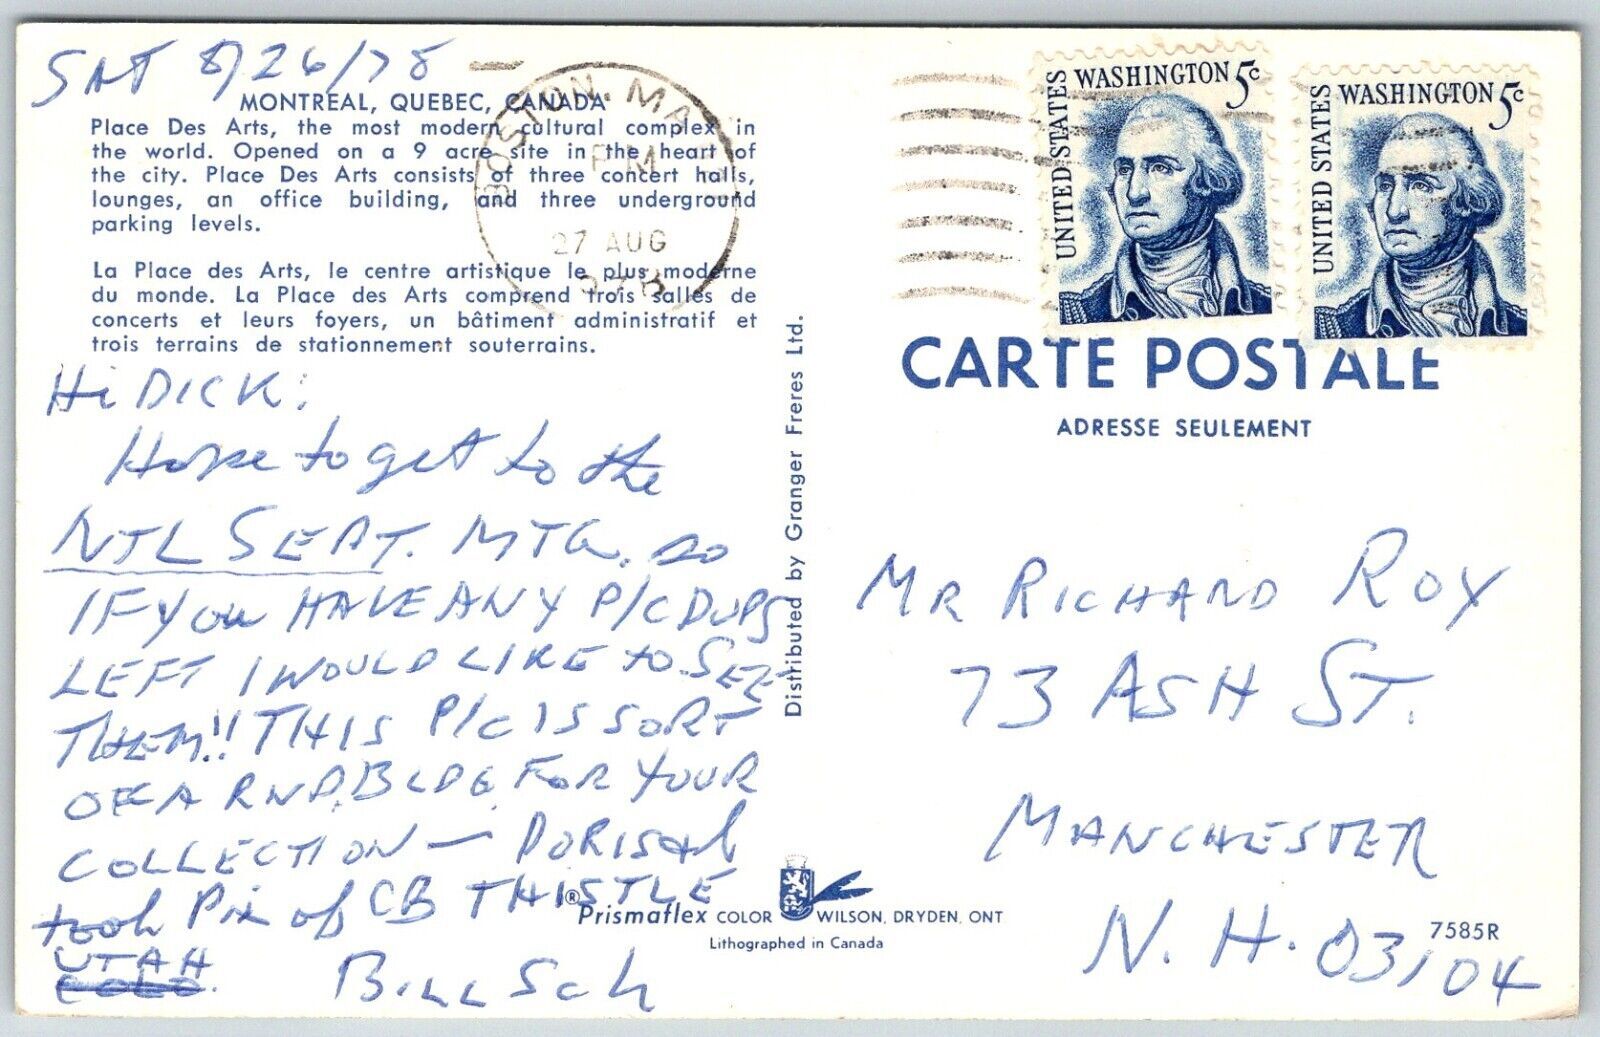 SAT 8/26/78
MONTREAL, QUEBEC, CANADA
Place Des Arts, the most modern cultural complex in
the world. Opened on a 9 acre site in the heart of
the city. Place Des Arts consists of three concert halls,
lounges, an office building, and three underground
parking levels.
La Place des Arts, le centre artistique le plus moderne
du monde. La Place des Arts comprend trois salles de
concerts et leurs foyers, un bâtiment administratif et
trois terrains de stationnement souterrains.
Hi DICK:
Hope to get to the
NTL SEAT. MTG. so
IF YOU HAVE ANY P/C DUPS
LEFT I WOULD LIKE to SEE
THEM!! THIS P/C IS SORT
OF A RND. BLDG FOR YOUR
COLLECTION — DORIS &
took Pix of CB THISTLE
UTAH
BILL Sch
BOSTON, MA
PM
27 AUG
UNITED STATES
WASHINGTON 5c
UNITED STATES
WASHINGTON 5c
CARTE POSTALE
ADRESSE SEULEMENT
Distributed by Granger Freres Ltd.
MR RICHARD ROY
73 ASH ST.
MANCHESTER
N. H. 03104
® Prismaflex COLOR WILSON, DRYDEN, ONT
Lithographed in Canada
7585R